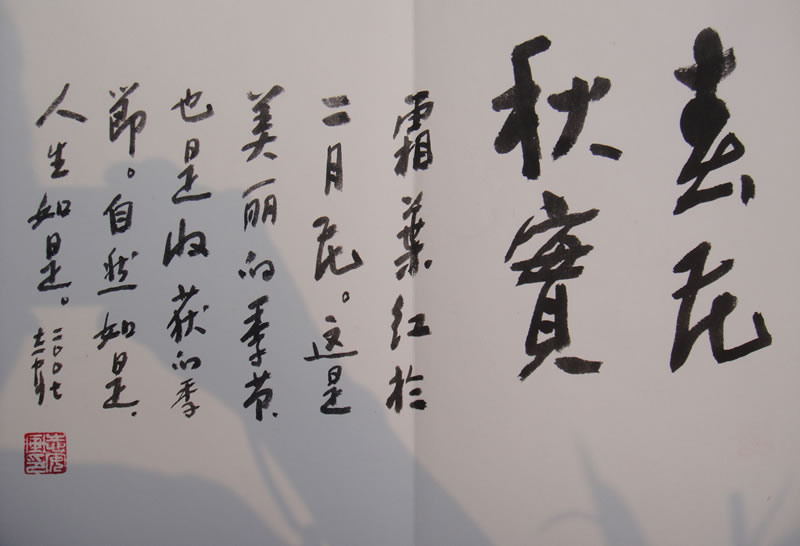 春花
秋實
霜葉红於
二月花。这是
美丽的季节,
也是收获的季
節。自然如是,
人生如是。
二〇〇七